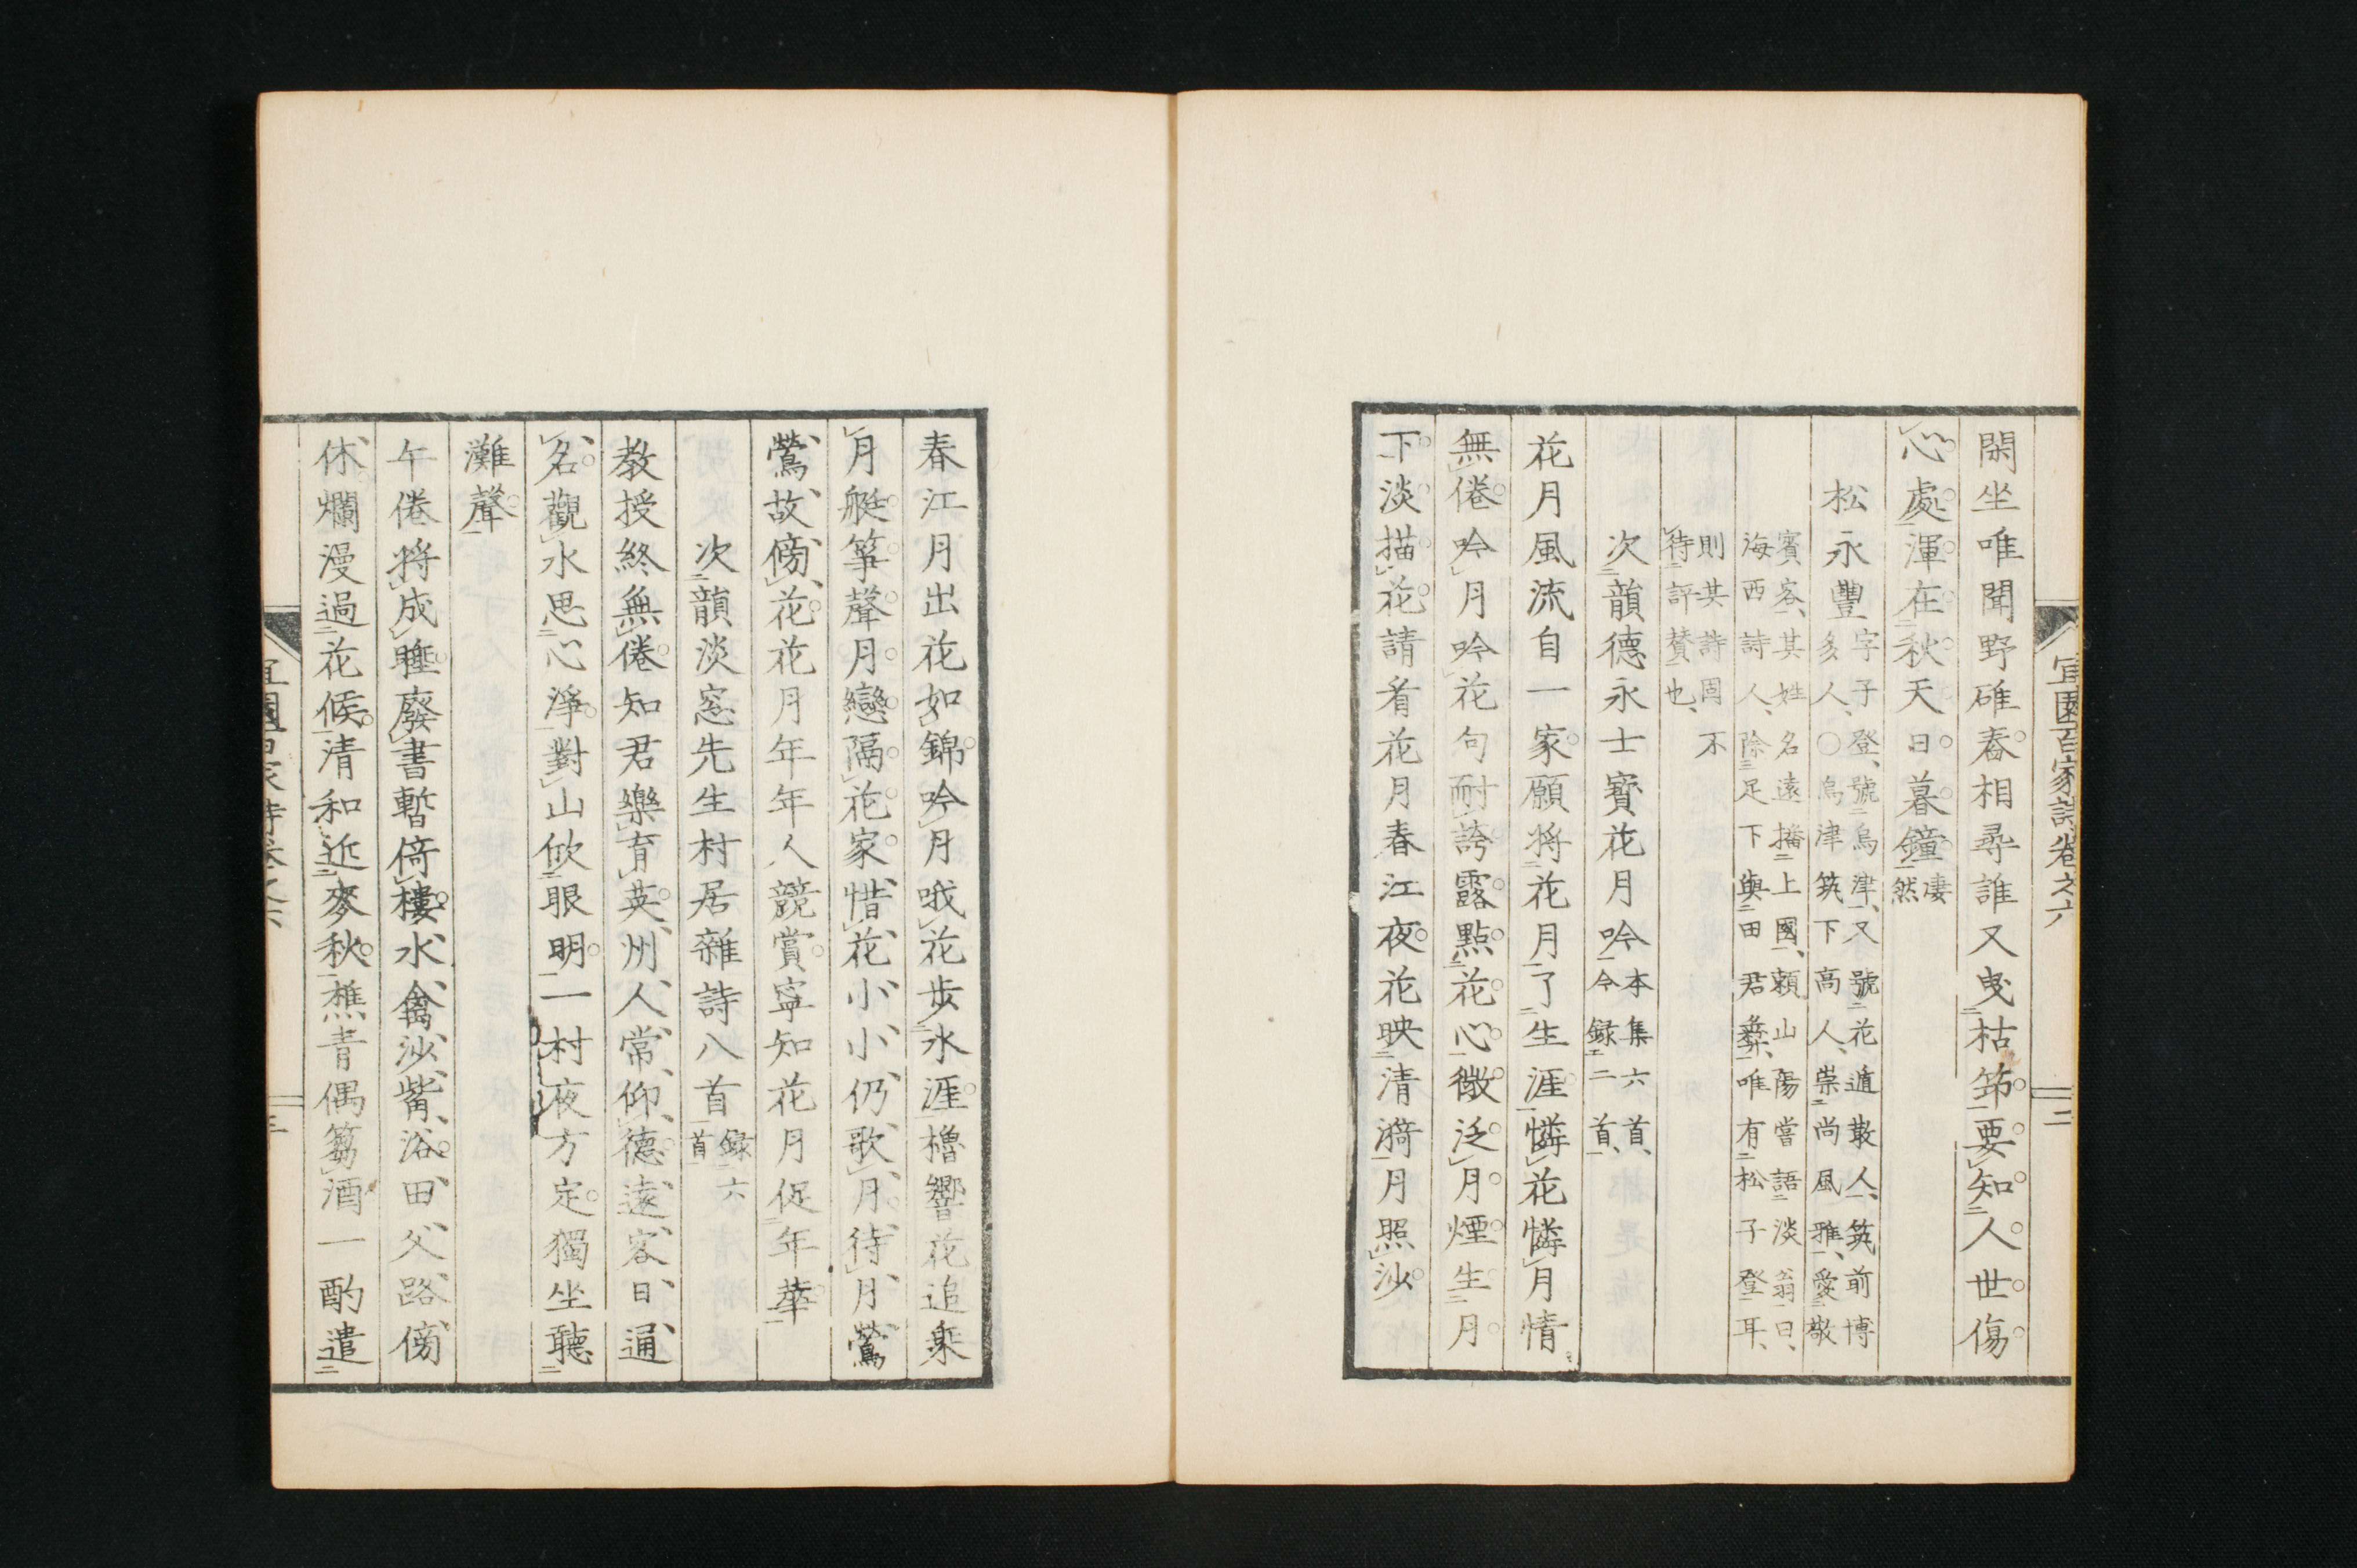 宜園百家詩卷之六
二
閑坐唯聞野碓舂相尋誰又曳枯筇要知人世傷
心處渾在秋天日暮鐘凄然
松永豐字子登、號烏津、又號花遁散人、筑前博
多人、○烏津筑下高人、崇尚風雅、愛敬
賓客、其姓名遠播上國、賴山陽嘗語淡翁曰、
海西詩人、除足下與田君彜、唯有松子登耳、
則其詩固不
待評賛也、
次韻德永士寶花月吟本集六首、今録二首、
花月風流自一家願將花月了生涯憐花憐月情
無倦吟月吟花句耐誇露點花心微泛月煙生月
下淡描花請看花月春江夜花映清漪月照沙
春江月出花如錦吟月哦花步水涯櫓響花追乘
月艇箏聲月戀隔花家惜花小小仍歌月待月鶯
鶯故傍花花月年年人競賞寧知花月促年華
次韻淡窓先生村居雜詩八首録六首
教授終無倦知君樂育英州人常仰德遠客日通
名觀水思心淨對山欣眼明一村夜方定獨坐聽
灘聲
午倦將成睡廢書暫倚樓水禽沙觜浴田父路傍
休爛漫過花候清和近麥秋樵青偶芻酒一酌遣